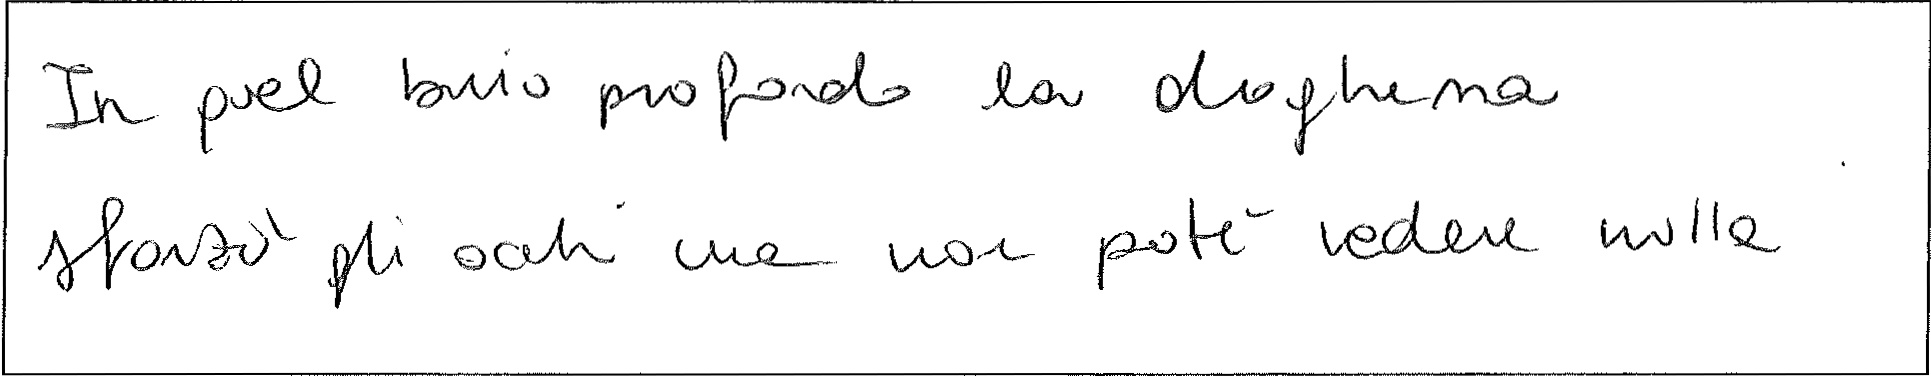 In quel buio profondo la droghema
sforzò gli occhi ma non poté vedere nulla